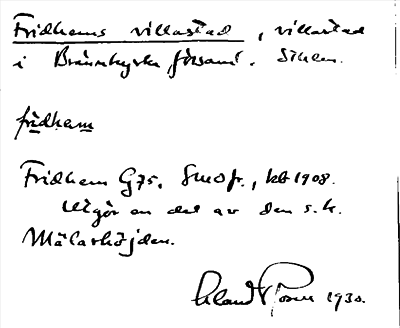 Fridhems villastad, villastad
i Brännkyrka församl. Sthlm.
fridhem
Fridhem G75. Smofr., kb 1908.
Utgör en del av den s.k.
Mälarhöjden.
Erland Rosell 1930.